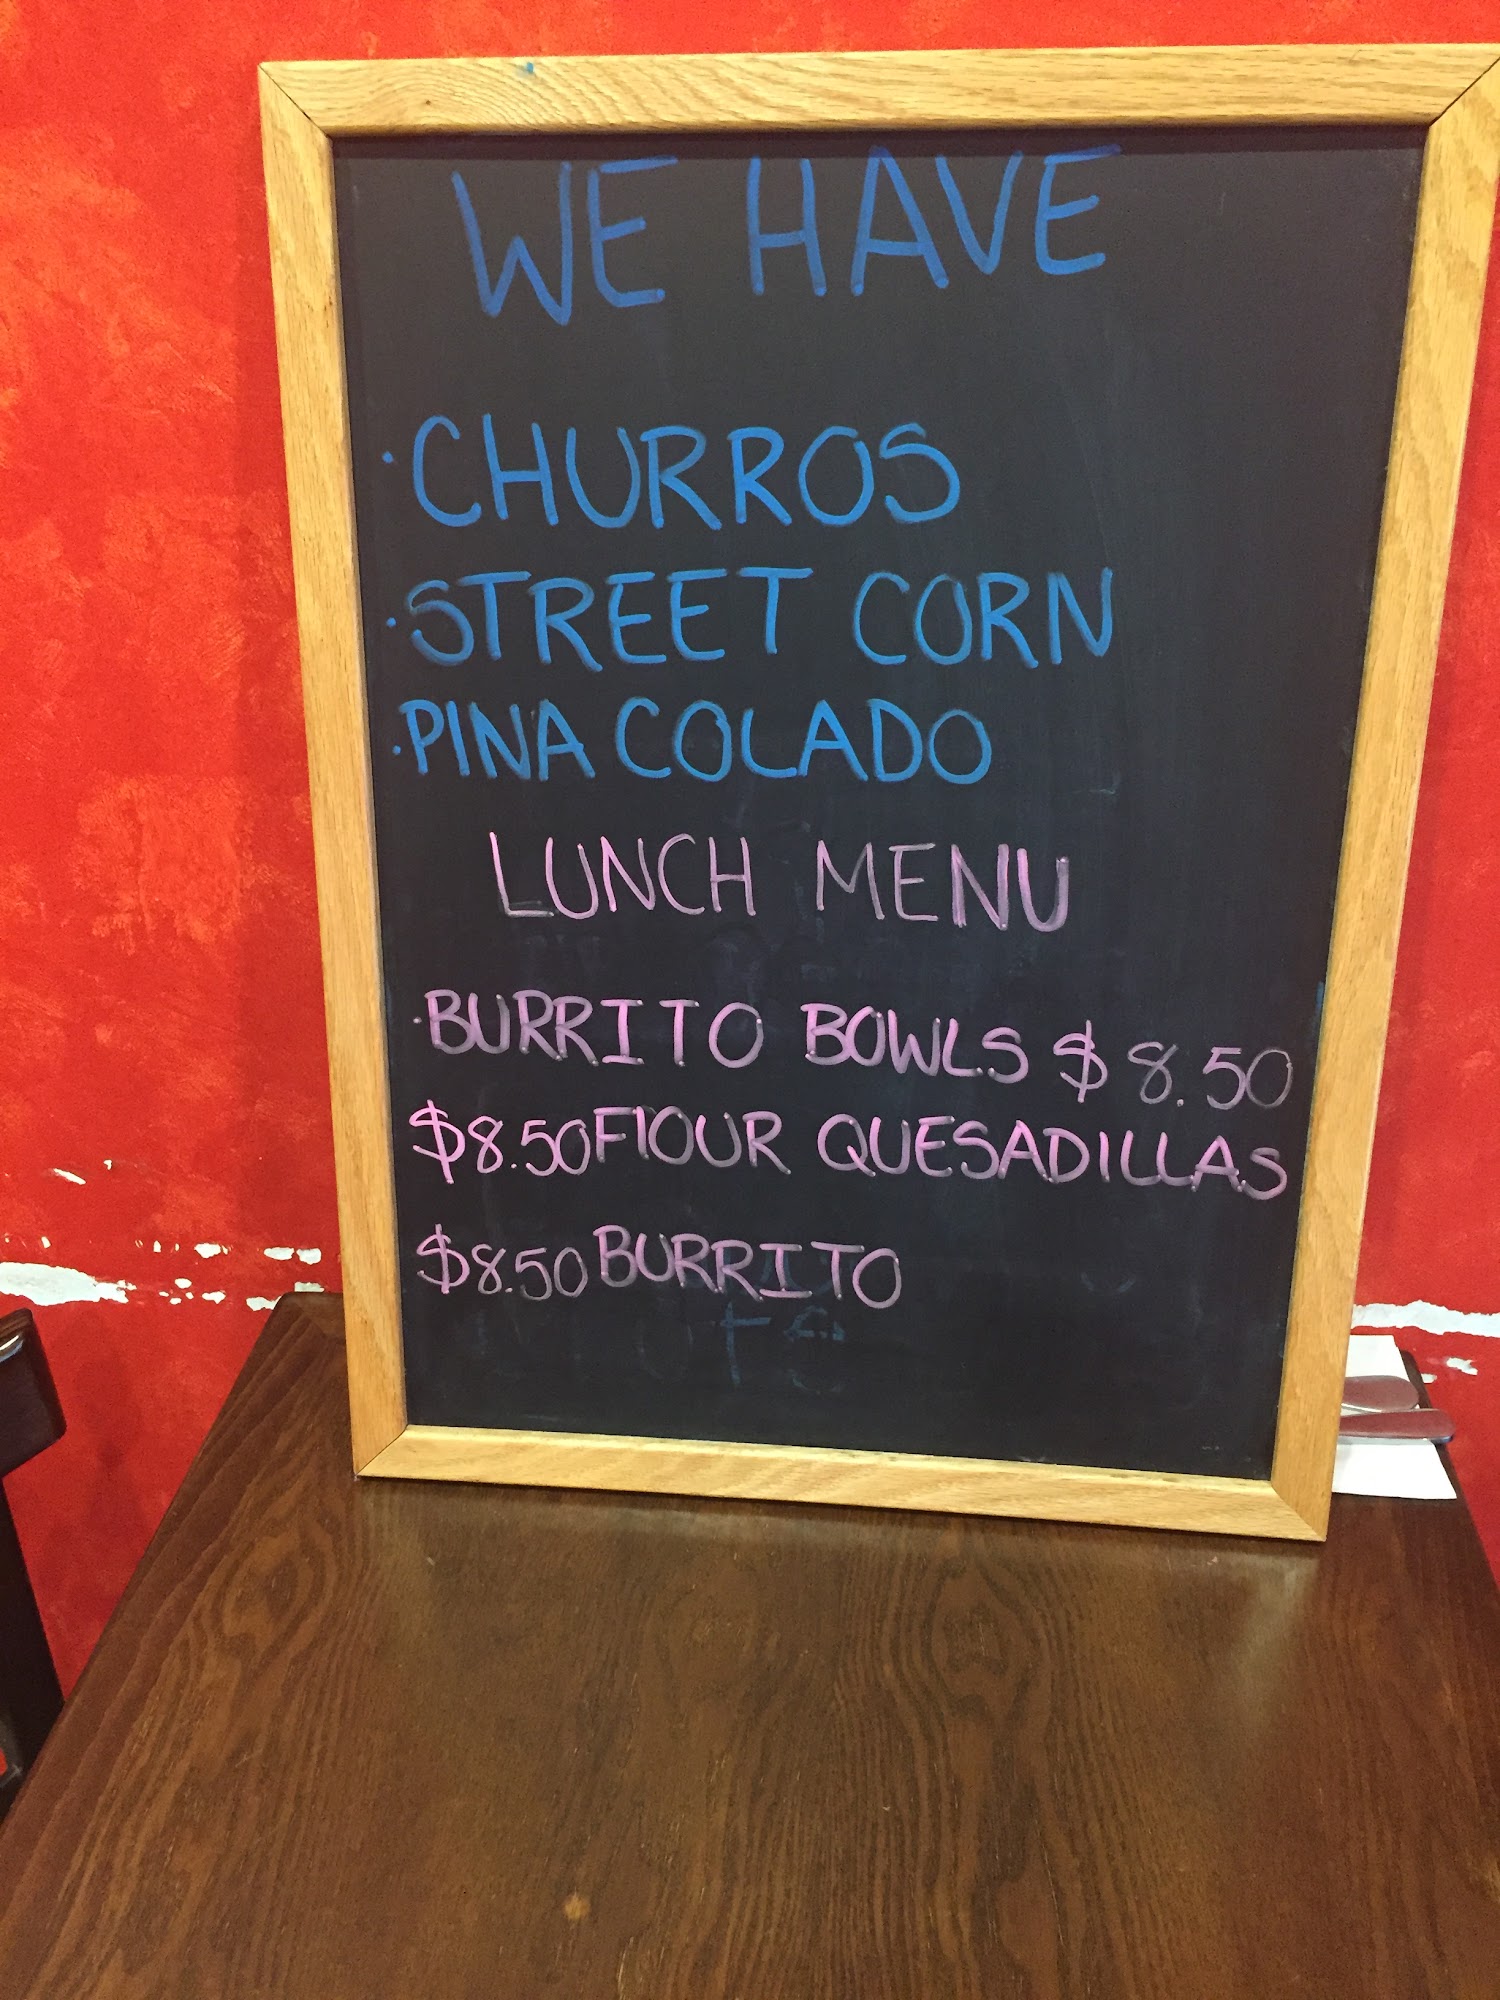 WE HAVE
·CHURROS
·STREET CORN
·PINA COLADO
LUNCH MENU
·BURRITO BOWLS $8.50
$8.50 FlOUR QUESADILLAS
$8.50 BURRITO